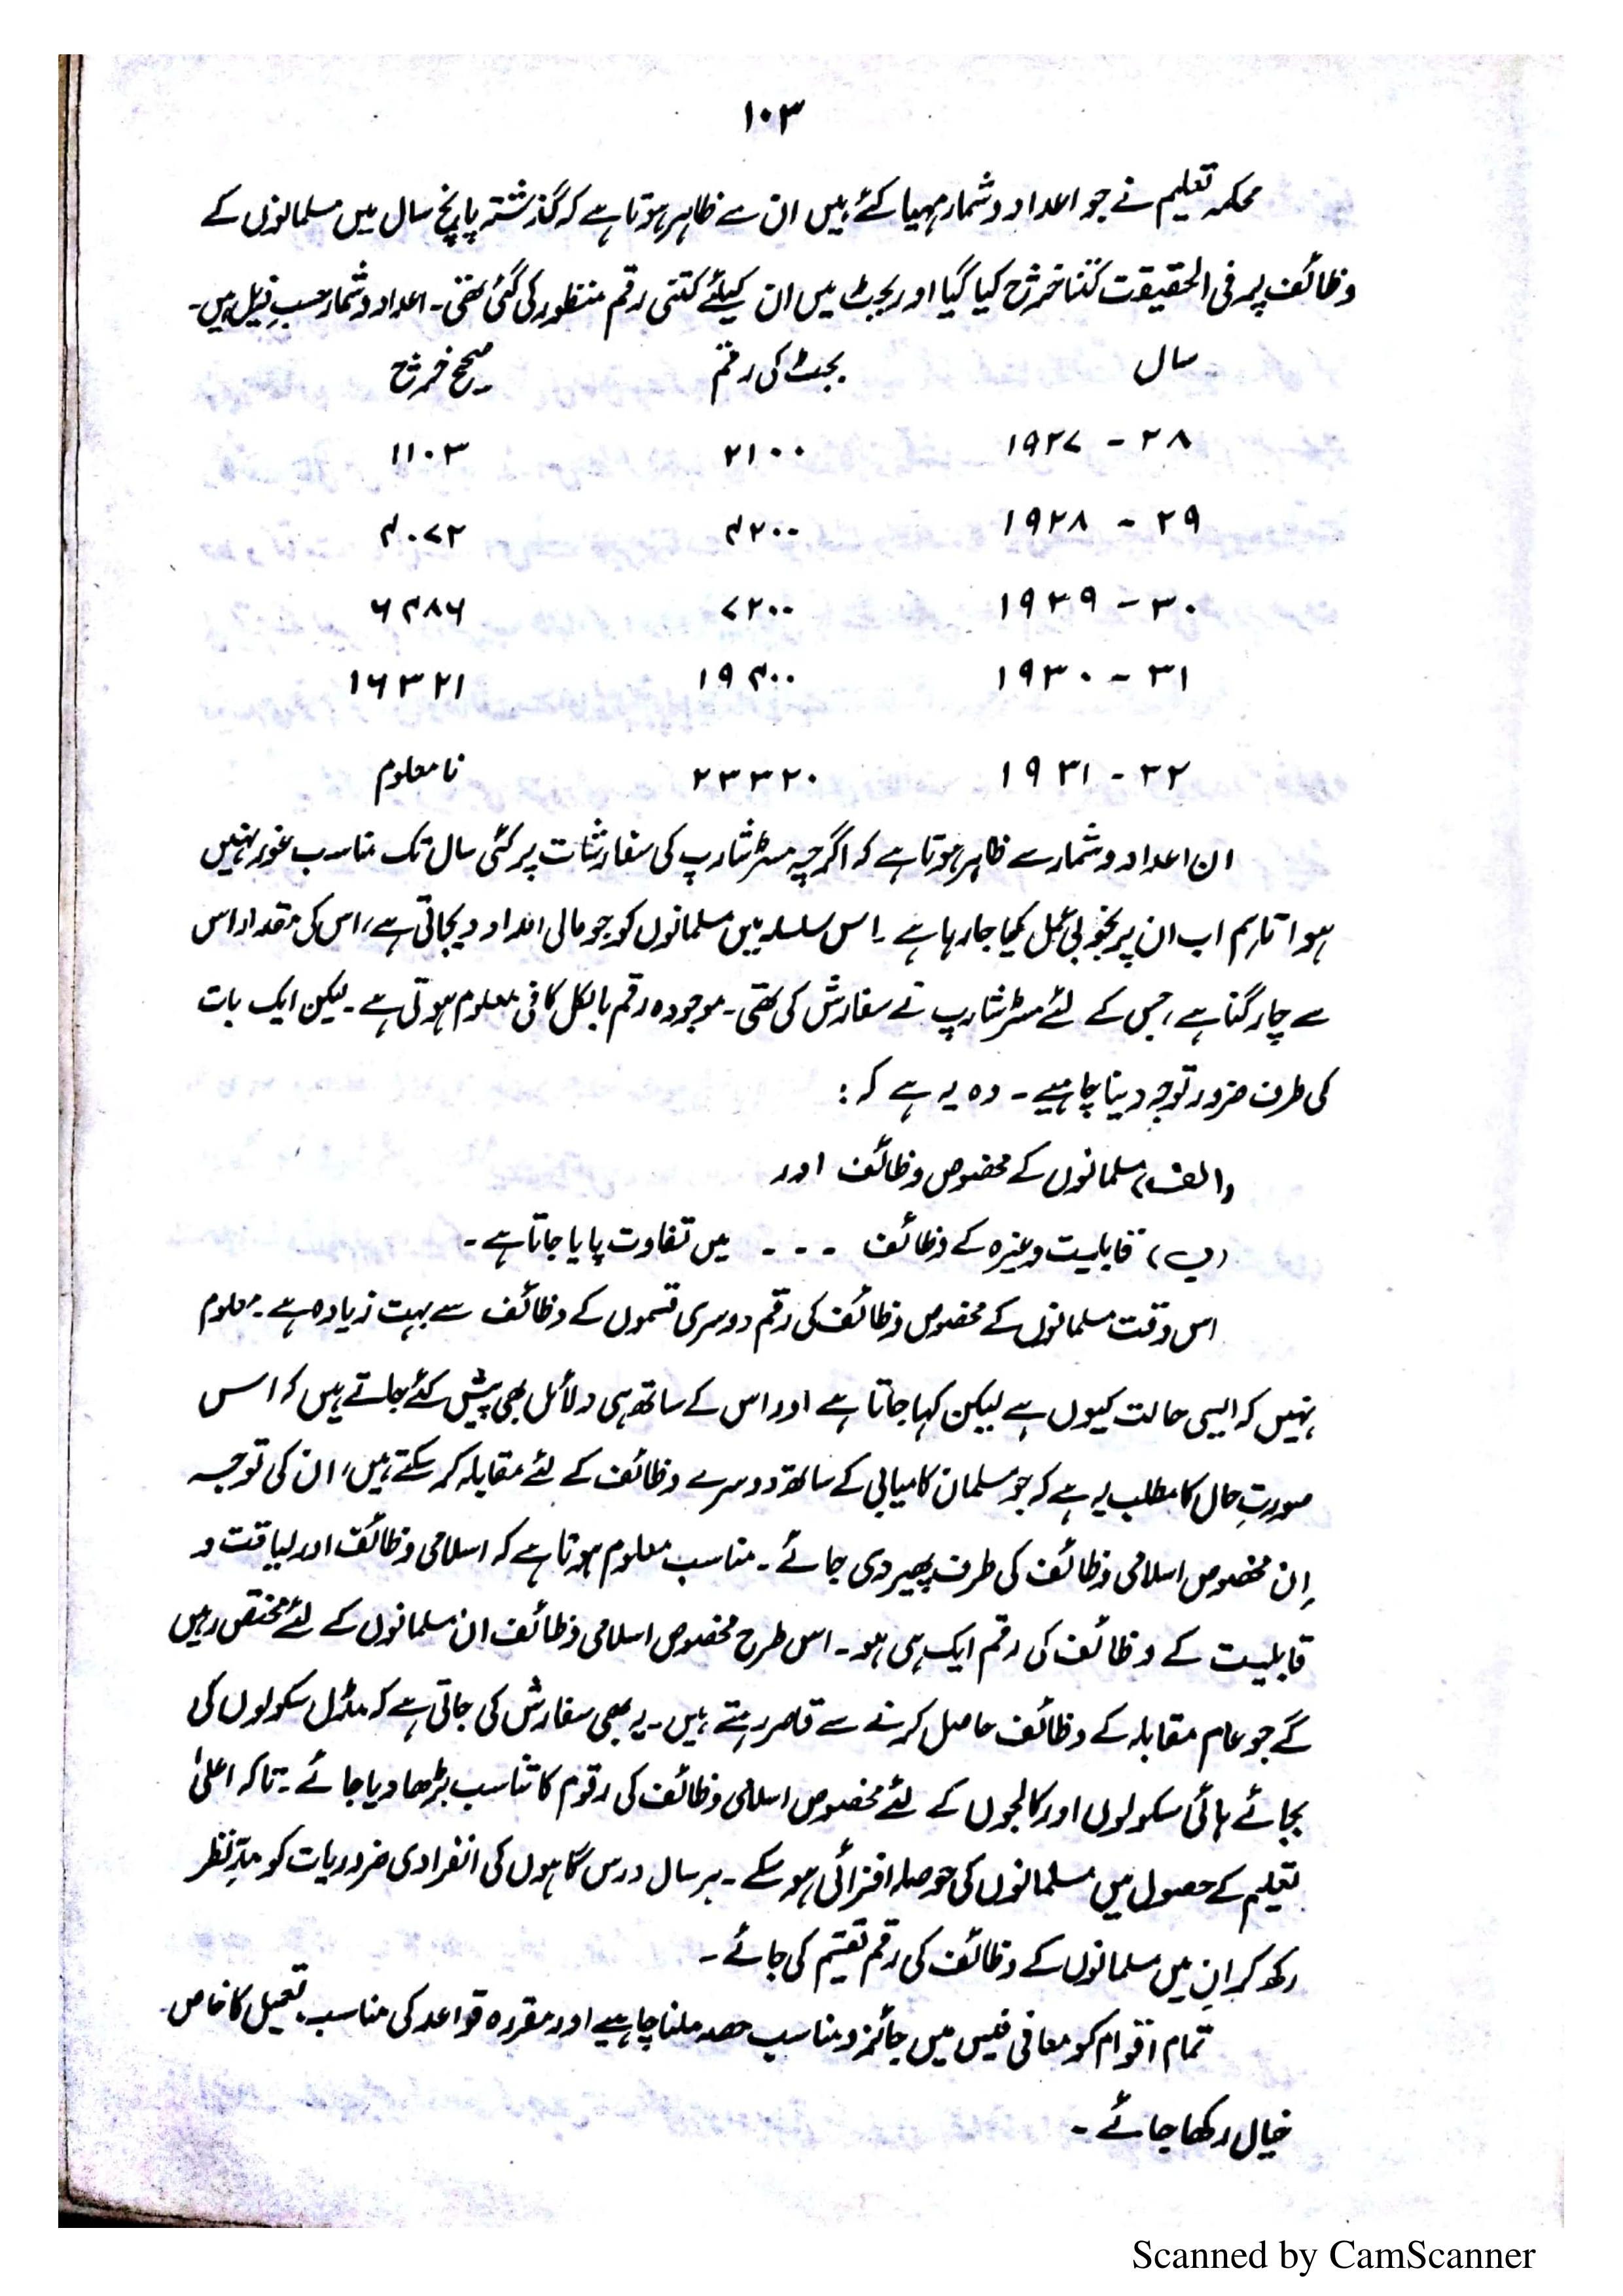 ۱۰۳
محکمہ تعلیم نے جو اعداد و شمار مہیا کئے ہیں ان سے ظاہر ہوتا ہے کہ گذشتہ پانچ سال میں مسلمانوں کے
وظائف پر فی الحقیقت کتنا خرچ کیا گیا اور بجٹ میں ان کیلئے کتنی رقم منظور کی گئی تھی۔ اعداد و شمار حسبِ ذیل ہیں۔
سال بجٹ کی رقم صحیح خرچ
۱۹۲۷ - ۲۸ ۲۱۰۰ ۱۱۰۳
۱۹۲۸ - ۲۹ ۴۲۰۰ ۴۰۷۲
۱۹۲۹ - ۳۰ ۷۲۰۰ ۶۴۸۶
۱۹۳۰ - ۳۱ ۱۹۴۰۰ ۱۶۳۲۱
۱۹۳۱ - ۳۲ ۲۳۳۲۰ نا معلوم
ان اعداد و شمار سے ظاہر ہوتا ہے کہ اگرچہ مسٹر شارپ کی سفارشات پر کئی سال تک مناسب غور نہیں
ہوا تاہم اب ان پر بخوبی عمل کیا جا رہا ہے۔ اس سلسلہ میں مسلمانوں کو جو مالی امداد دیجاتی ہے، اس کی مقدار اس
سے چار گنا ہے، جس کے لئے مسٹر شارپ نے سفارش کی تھی۔ موجودہ رقم بالکل کافی معلوم ہوتی ہے۔ لیکن ایک بات
کی طرف ضرور توجہ دینا چاہیے۔ وہ یہ ہے کہ:
(الف) مسلمانوں کے مخصوص وظائف اور
(ب) قابلیت وغیرہ کے وظائف - - - میں تفاوت پایا جاتا ہے۔
اس وقت مسلمانوں کے مخصوص وظائف کی رقم دوسری قسموں کے وظائف سے بہت زیادہ ہے۔ معلوم
نہیں کہ ایسی حالت کیوں ہے لیکن کہا جاتا ہے اور اس کے ساتھ ہی دلائل بھی پیش کئے جاتے ہیں کہ اس
صورتِ حال کا مطلب یہ ہے کہ جو مسلمان کامیابی کے ساتھ دوسرے وظائف کے لئے مقابلہ کر سکتے ہیں، ان کی توجہ
اِن مخصوص اسلامی وظائف کی طرف پھیر دی جائے۔ مناسب معلوم ہوتا ہے کہ اسلامی وظائف اور لیاقت و
قابلیت کے وظائف کی رقم ایک ہی ہو۔ اس طرح مخصوص اسلامی وظائف ان مسلمانوں کے لئے مختص رہیں
گے جو عام مقابلہ کے وظائف حاصل کرنے سے قاصر رہتے ہیں۔ یہ بھی سفارش کی جاتی ہے کہ مڈل سکولوں کی
بجائے ہائی سکولوں اور کالجوں کے لئے مخصوص اسلامی وظائف کی رقوم کا تناسب بڑھا دیا جائے۔ تاکہ اعلیٰ
تعلیم کے حصول میں مسلمانوں کی حوصلہ افزائی ہو سکے۔ ہر سال درس گاہوں کی انفرادی ضروریات کو مدِّنظر
رکھ کر اِن میں مسلمانوں کے وظائف کی رقم تقسیم کی جائے۔
تمام اقوام کو معافی فیس میں جائز و مناسب حصہ ملنا چاہیے اور مقررہ قواعد کی مناسب تعمیل کا خاص
خیال رکھا جائے۔
Scanned by CamScanner